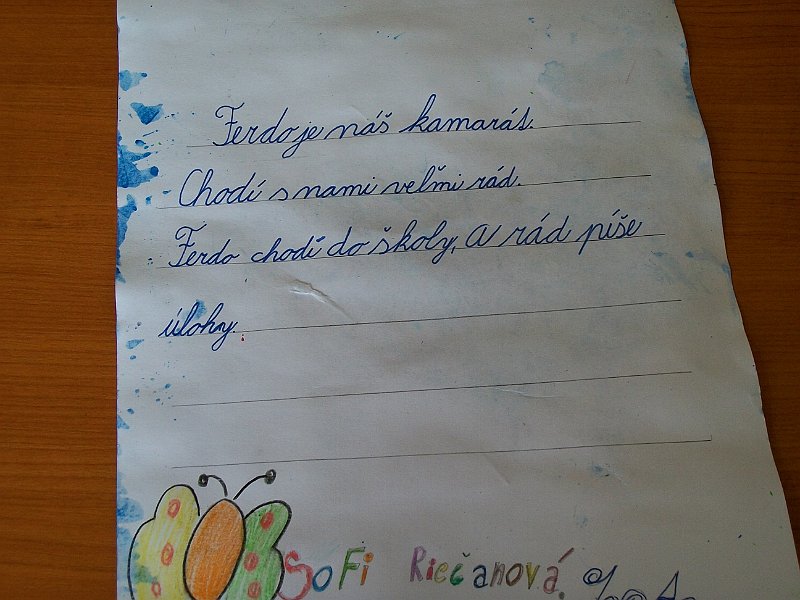 Ferdo je náš kamarát.
Chodí s nami veľmi rád.
Ferdo chodí do školy, a rád píše
úlohy.
Sofi Riečanová.